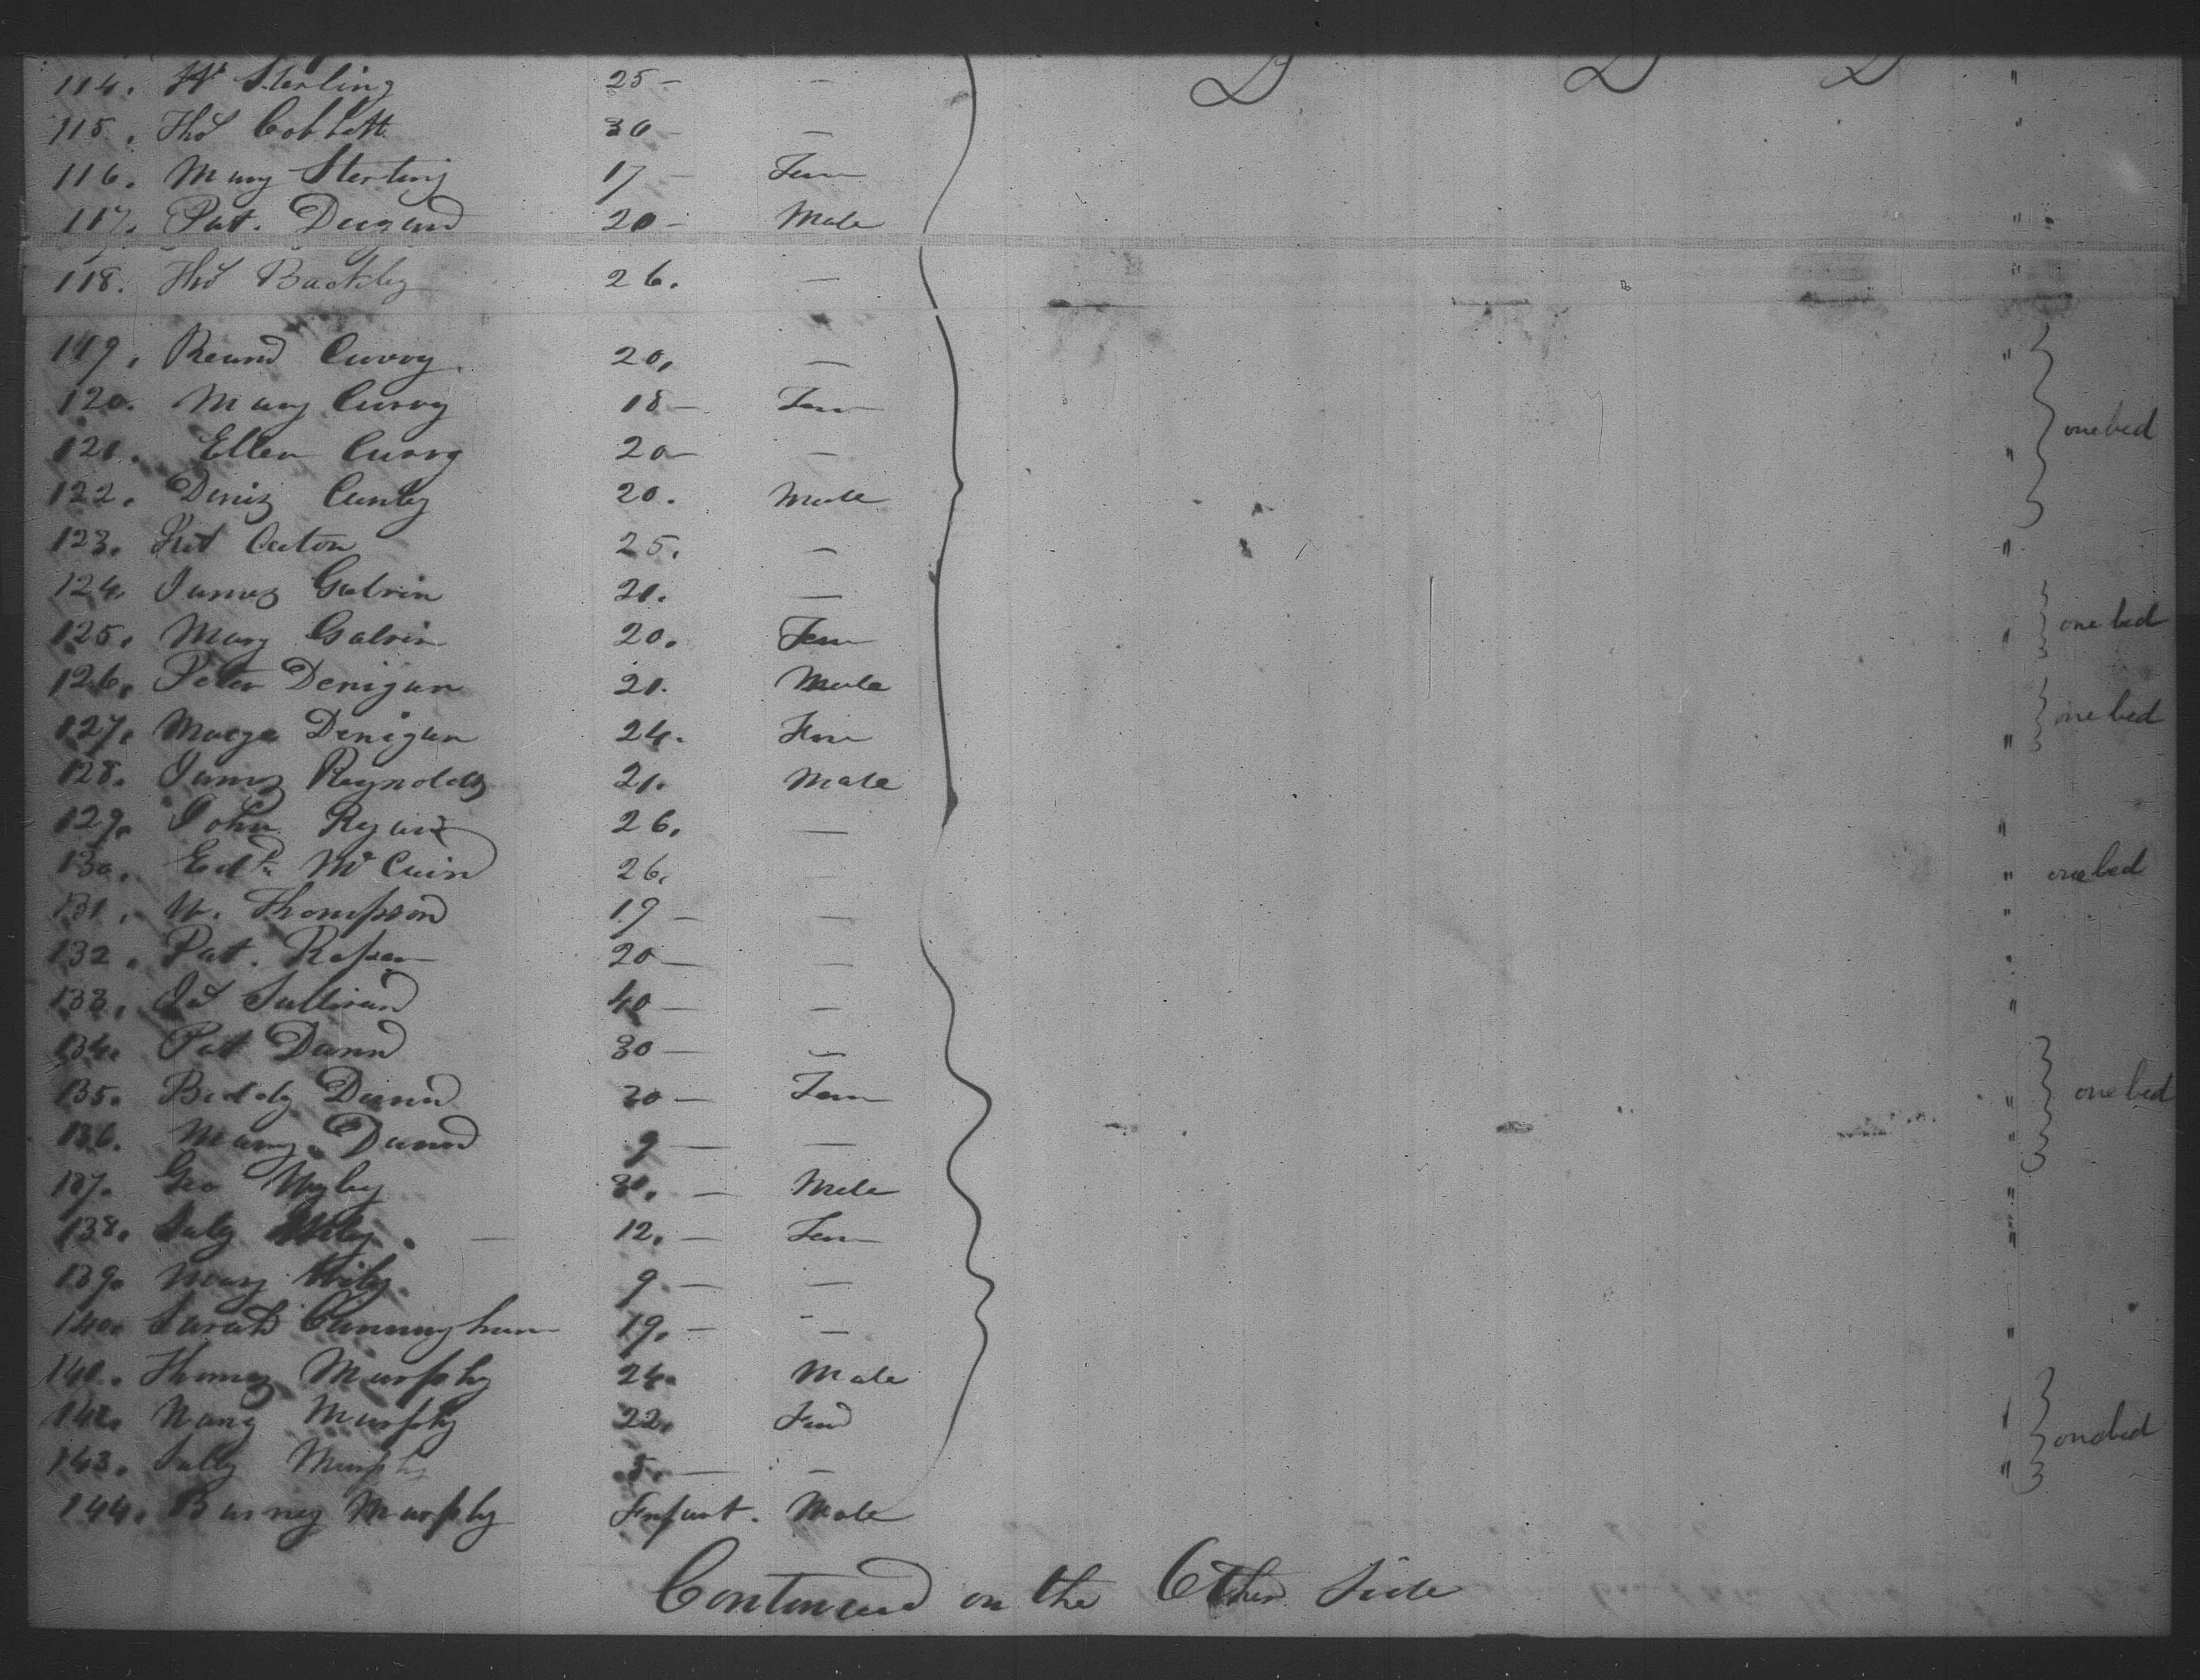 114. Wm Sterling 25 — — D D D "
115. Thos Corbett 30 — — "
116. Mary Sterling 17 — Fem
117. Pat. Dugan 20 — Male "
118. Thos Buckley 26. — "
119. Curry. 20. — "
120. Mary Curry 18 — Fem
121. Ellen Curry 20 — — " one bed
122. Denis 20. Male
123. Pat 25. — "
124. James Galvin 21. —
125. Mary Galvin 20. Fem " one bed
126. Peter Denigan 21. Male
127. Denigan 24. Fem " one bed
128. James Reynolds 21. Male
129. John Ryan 26. — "
130. Edd. 26. — " one bed
131. W. Thompson 19 — — "
132. Pat. 20 — — "
133. Js Sullivan 40 — — "
134. Pat Dunn 30 — —
135. Biddy Dunn 30 — Fem " one bed
136. Mary Dunn 9 — — "
137. Geo 30. — Male "
138. Saly Wiley. — 12. — Fem "
139. Mary Wily. 9. — —
140. Sarah Cunningham 19. — — "
141. Thomas Murphy 24. Male
142. Nancy Murphy 22. Fem " one bed
143. Sally Murphy 5. — — "
144. Barney Murphy Infant. Male
Continued on the Other Side